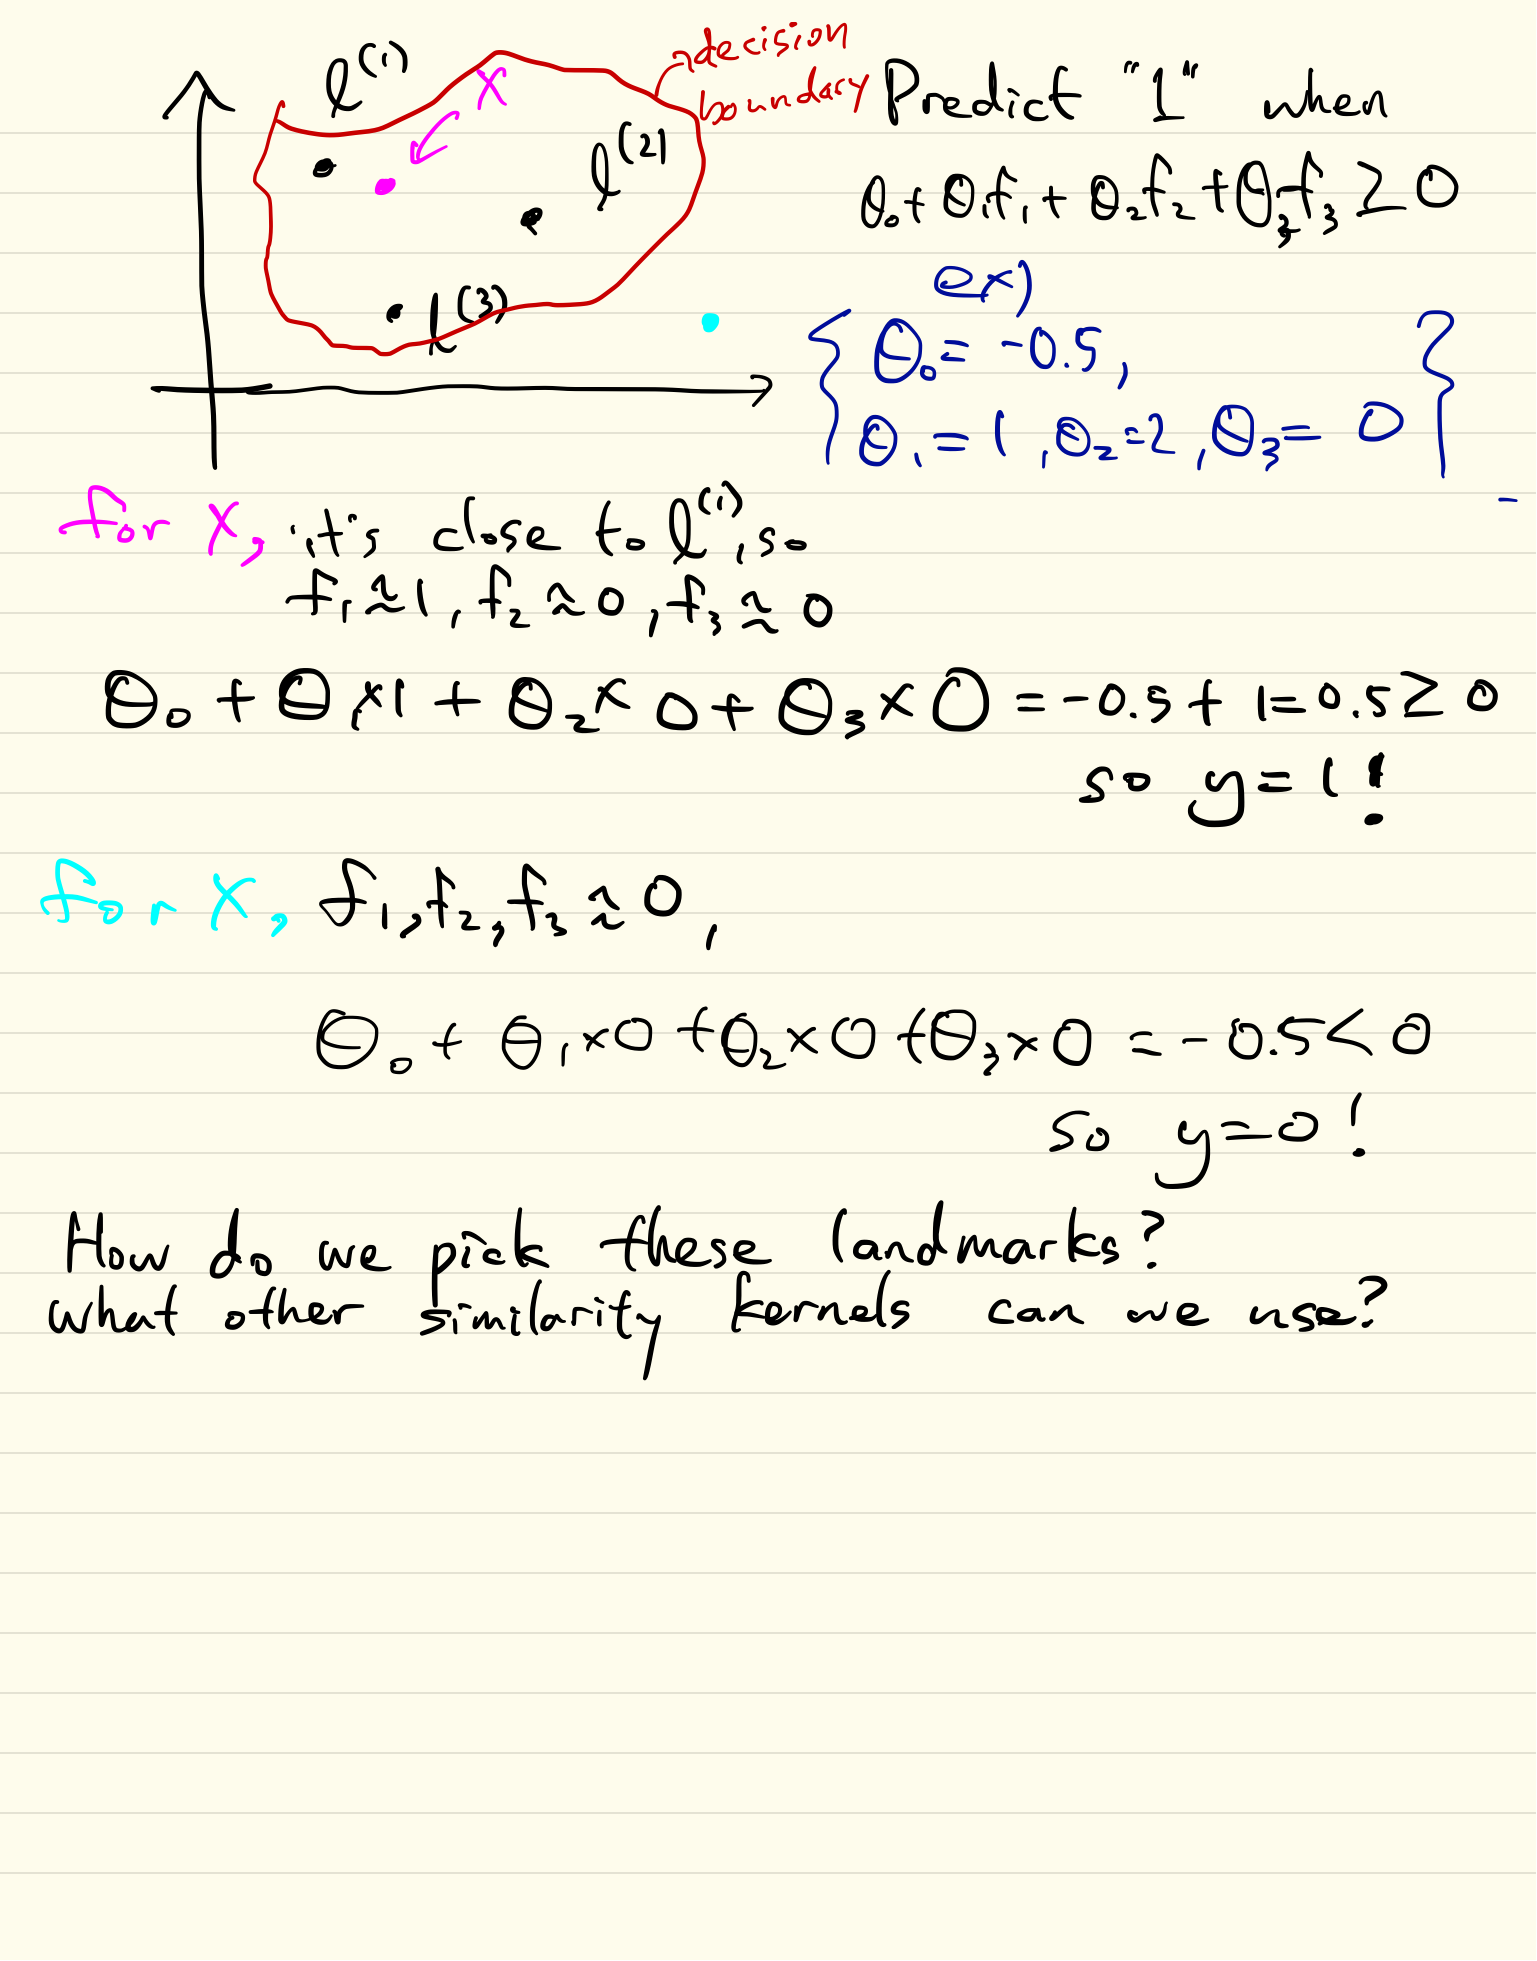 l^(1)
x
decision
boundary
l^(2)
l^(3)
Predict "1" when
θ₀ + θ₁f₁ + θ₂f₂ + θ₃f₃ ≥ 0
ex)
{ θ₀ = -0.5,
θ₁ = 1, θ₂ = 2, θ₃ = 0 }
for x, it's close to l^(1), so
f₁ ≈ 1, f₂ ≈ 0, f₃ ≈ 0
θ₀ + θ₁×1 + θ₂×0 + θ₃×0 = -0.5 + 1 = 0.5 ≥ 0
so y = 1!
for x, f₁, f₂, f₃ ≈ 0,
θ₀ + θ₁×0 + θ₂×0 + θ₃×0 = -0.5 < 0
so y = 0!
How do we pick these landmarks?
what other similarity kernels can we use?